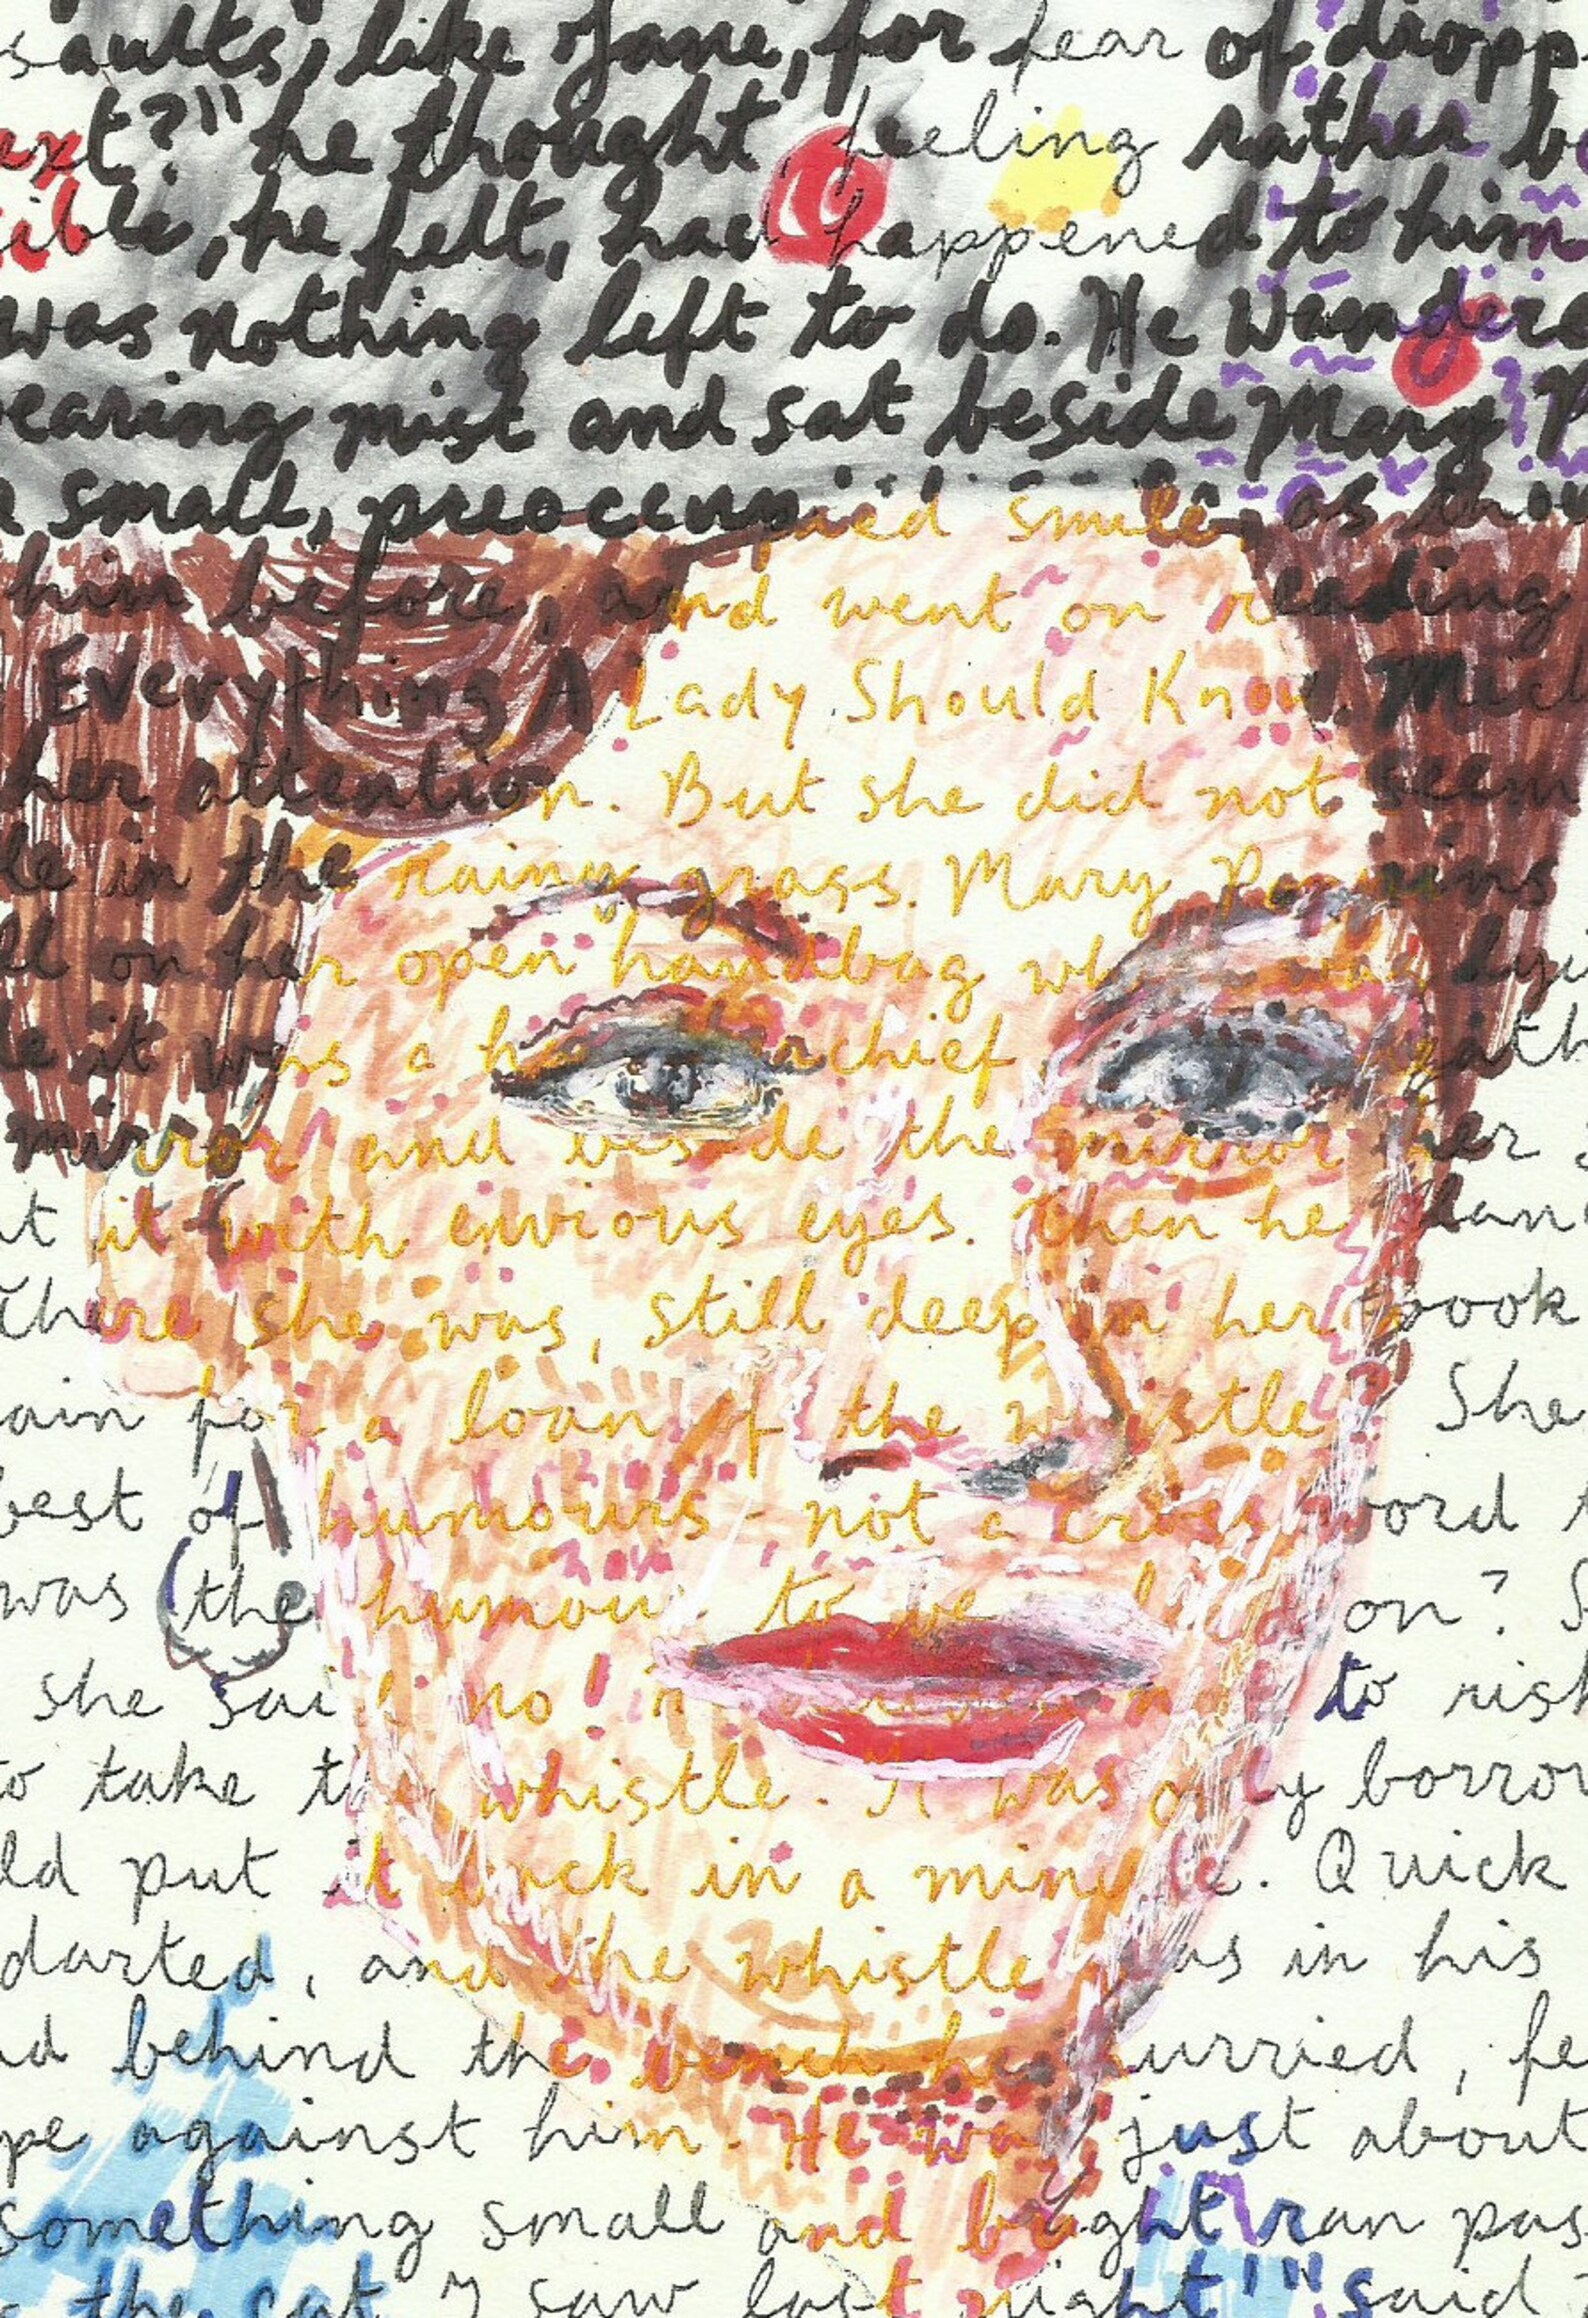 saults, like Jane, for fear of dropp
ext?" he thought, feeling rather bo
ible, he felt, had happened to him
was nothing left to do. He wandere
earing mist and sat beside Mary P
a small, preoccupied smile, as thou
him before, and went on reading
Everything A Lady Should Know. Mich
her attention. But she did not seem
le in the rainy grass. Mary Poppins
ll on her open handbag which was lyi
e it was a handkerchief
mirror and beside the mirror her s
t it with envious eyes. Then he glanc
There she was, still deep in her book
ain for a loan of the whistle? She
best of humours - not a cross word
was the humour to be relied on? S
she said no! to risk
to take the whistle. It was only borrow
ld put it back in a minute. Quick
darted, and the whistle was in his
d behind the bench he hurried, fe
pe against him. He was just about
something small and bright ran pas
the cat I saw last night!" said